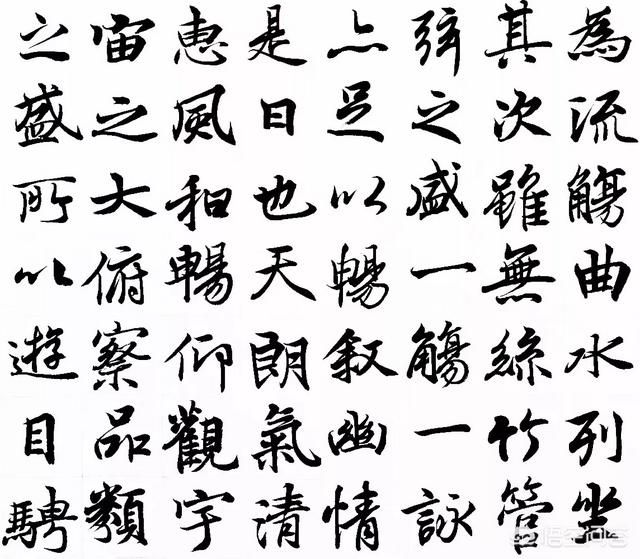 為流觴曲水列坐
其次雖無絲竹管
弦之盛一觴一詠
亦足以暢叙幽情
是日也天朗氣清
惠風和暢仰觀宇
宙之大俯察品類
之盛所以遊目騁
悟空问答